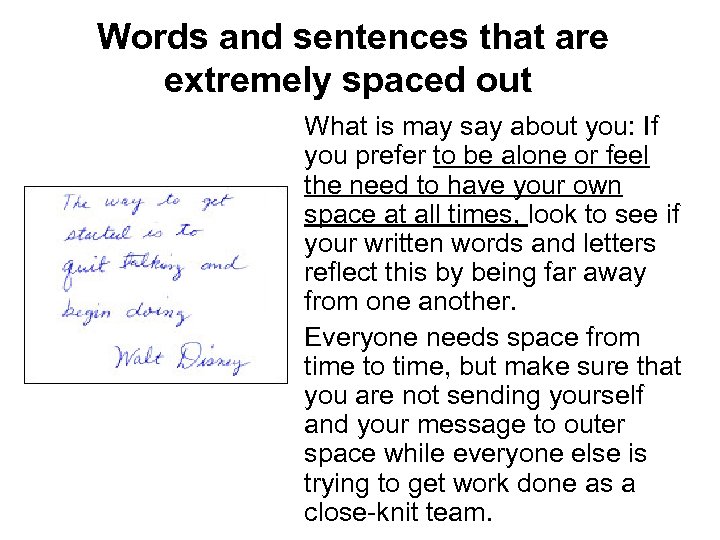 Words and sentences that are
extremely spaced out
The way to get
started is to
quit talking and
begin doing
Walt Disney
What is may say about you: If
you prefer to be alone or feel
the need to have your own
space at all times, look to see if
your written words and letters
reflect this by being far away
from one another.
Everyone needs space from
time to time, but make sure that
you are not sending yourself
and your message to outer
space while everyone else is
trying to get work done as a
close-knit team.